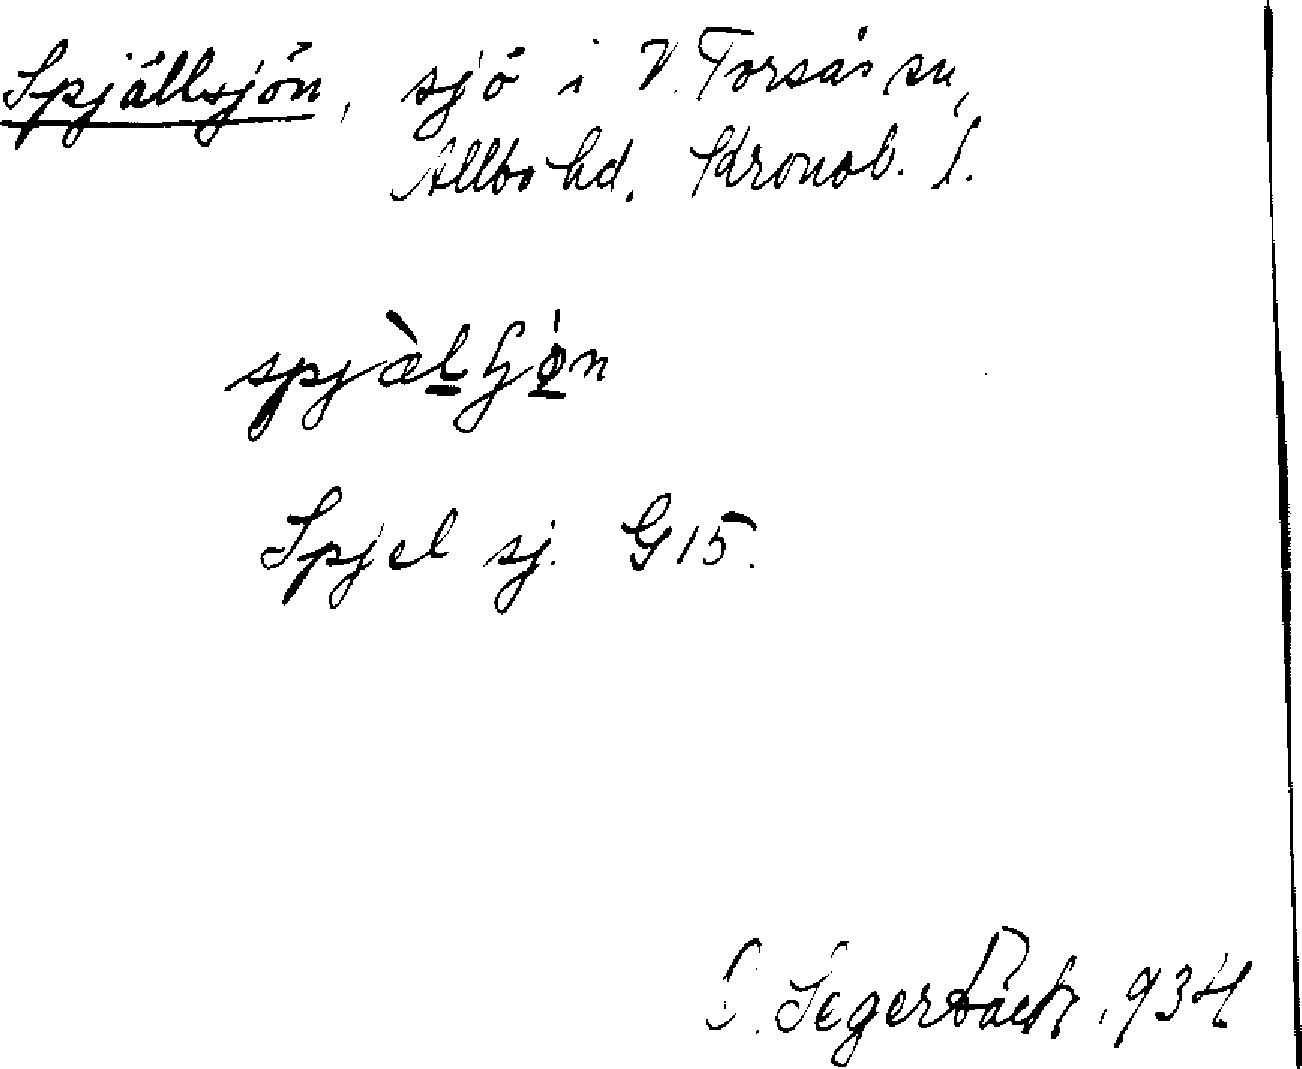 Spjällsjön, sjö i V. Torsås sn,
Allbo hd. Kronob. l.
spjæ̀lʃø̀n
Spjel sj. G15.
Segerbäck, 934